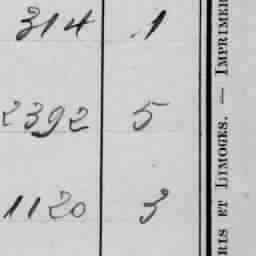 314 1
2392 5
1120 3
RIS ET LIMOGES. — IMPRIMER